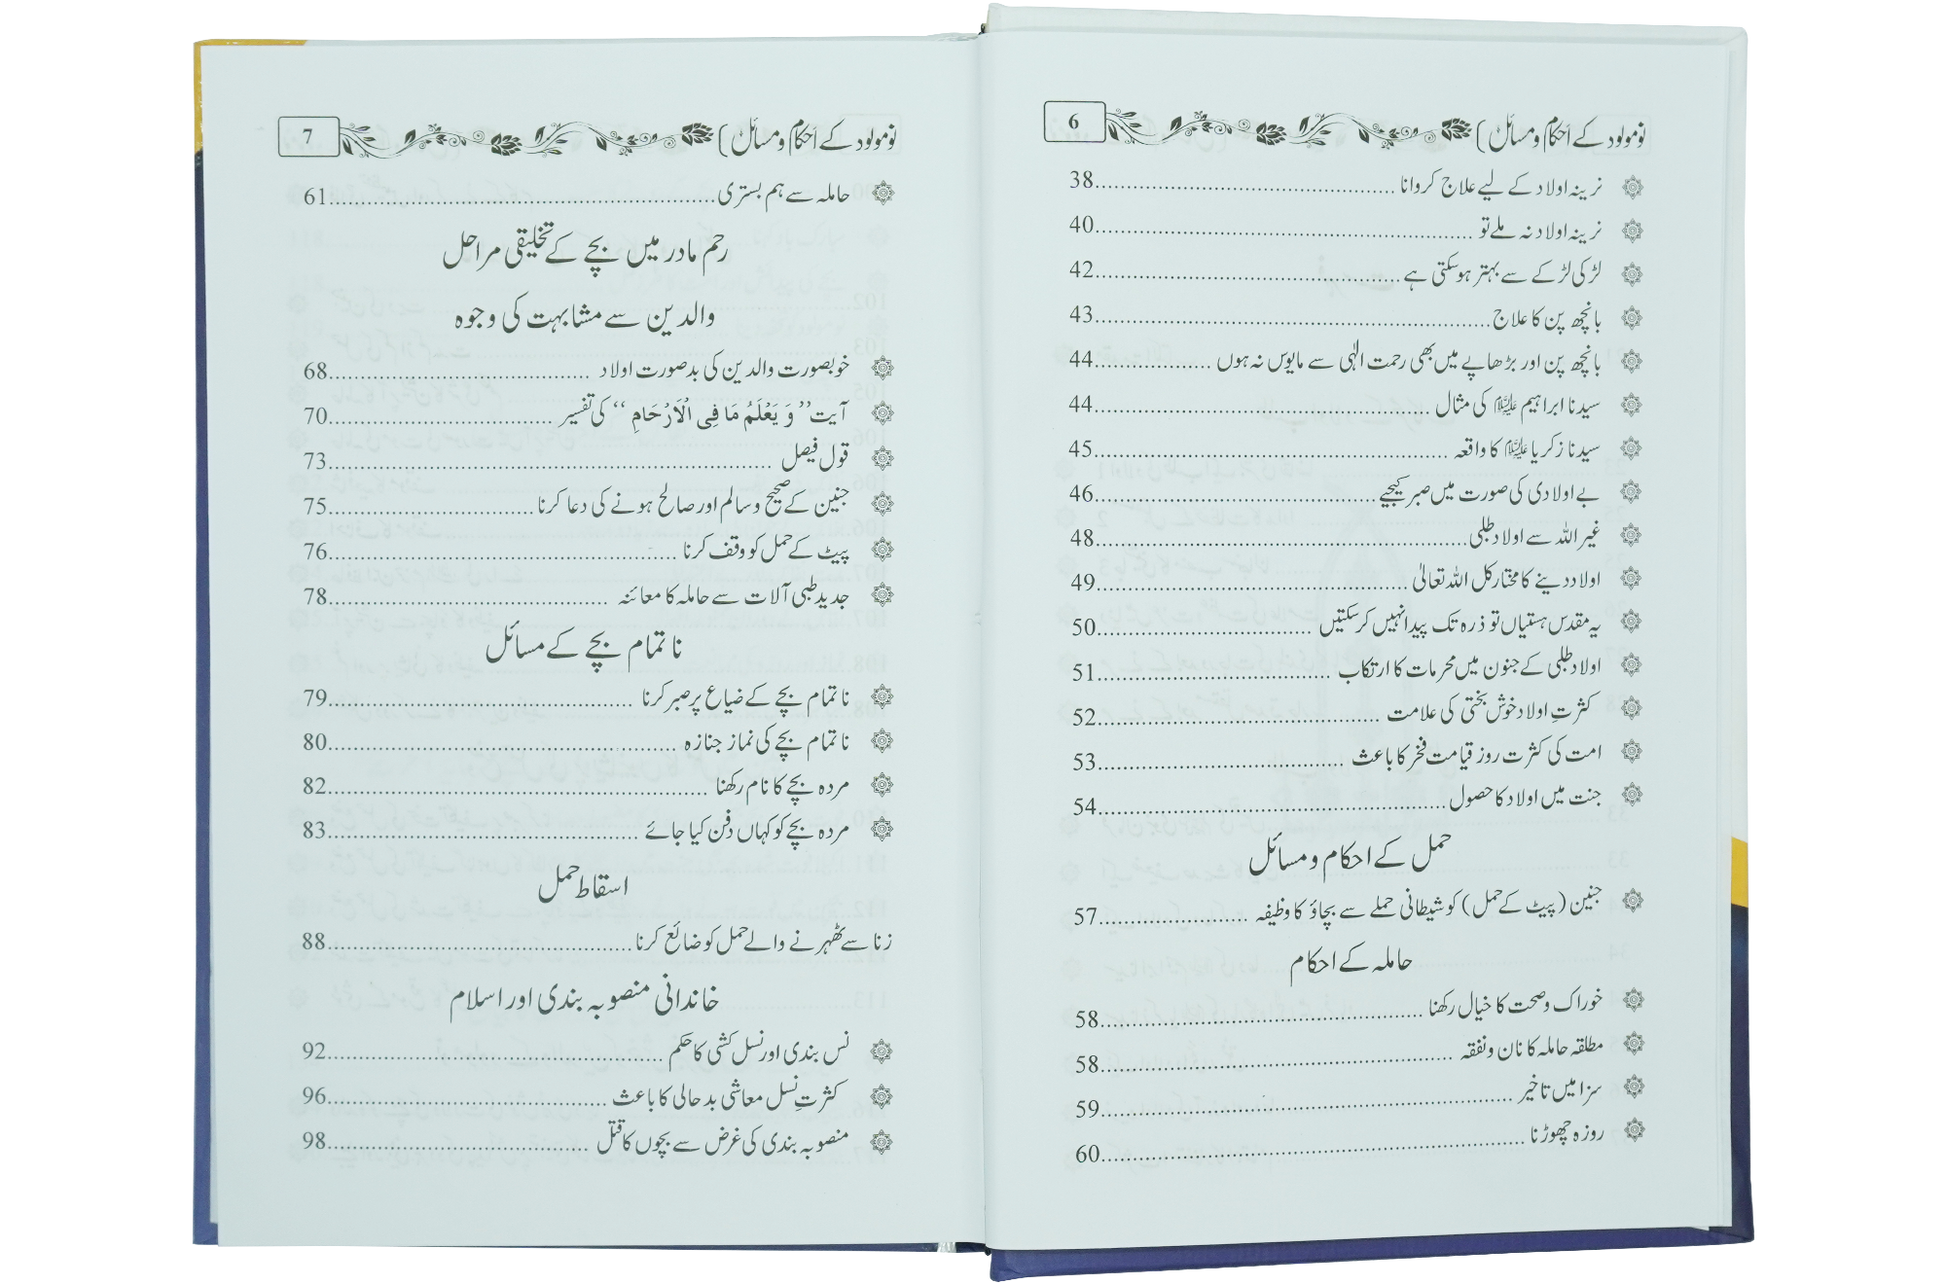 نومولود کے احکام و مسائل) 6
نرینہ اولاد کے لیے علاج کروانا ........ 38
نرینہ اولاد نہ ملے تو ........ 40
لڑکی لڑکے سے بہتر ہوسکتی ہے ........ 42
بانجھ پن کا علاج ........ 43
بانجھ پن اور بڑھاپے میں بھی رحمت الٰہی سے مایوس نہ ہوں ........ 44
سیدنا ابراہیم علیہ السلام کی مثال ........ 44
سیدنا زکریا علیہ السلام کا واقعہ ........ 45
بے اولادی کی صورت میں صبر کیجیے ........ 46
غیر اللہ سے اولاد طلبی ........ 48
اولاد دینے کا مختار کل اللہ تعالیٰ ........ 49
یہ مقدس ہستیاں تو ذرہ تک پیدا نہیں کرسکتیں ........ 50
اولاد طلبی کے جنون میں محرمات کا ارتکاب ........ 51
کثرتِ اولاد خوش بختی کی علامت ........ 52
امت کی کثرت روز قیامت فخر کا باعث ........ 53
جنت میں اولاد کا حصول ........ 54
حمل کے احکام و مسائل
جنین (پیٹ کے حمل) کو شیطانی حملے سے بچاؤ کا وظیفہ ........ 57
حاملہ کے احکام
خوراک و صحت کا خیال رکھنا ........ 58
مطلقہ حاملہ کا نان و نفقہ ........ 58
سزا میں تاخیر ........ 59
روزہ چھوڑنا ........ 60
نومولود کے احکام و مسائل) 7
حاملہ سے ہم بستری ........ 61
رحم مادر میں بچے کے تخلیقی مراحل
والدین سے مشابہت کی وجوہ
خوبصورت والدین کی بدصورت اولاد ........ 68
آیت ’’وَ یَعْلَمُ مَا فِی الْاَرْحَامِ‘‘ کی تفسیر ........ 70
قول فیصل ........ 73
جنین کے صحیح و سالم اور صالح ہونے کی دعا کرنا ........ 75
پیٹ کے حمل کو وقف کرنا ........ 76
جدید طبی آلات سے حاملہ کا معائنہ ........ 78
ناتمام بچے کے مسائل
ناتمام بچے کے ضیاع پر صبر کرنا ........ 79
ناتمام بچے کی نماز جنازہ ........ 80
مردہ بچے کا نام رکھنا ........ 82
مردہ بچے کو کہاں دفن کیا جائے ........ 83
اسقاط حمل
زنا سے ٹھہرنے والے حمل کو ضائع کرنا ........ 88
خاندانی منصوبہ بندی اور اسلام
نس بندی اور نسل کشی کا حکم ........ 92
کثرتِ نسل معاشی بدحالی کا باعث ........ 96
منصوبہ بندی کی غرض سے بچوں کا قتل ........ 98